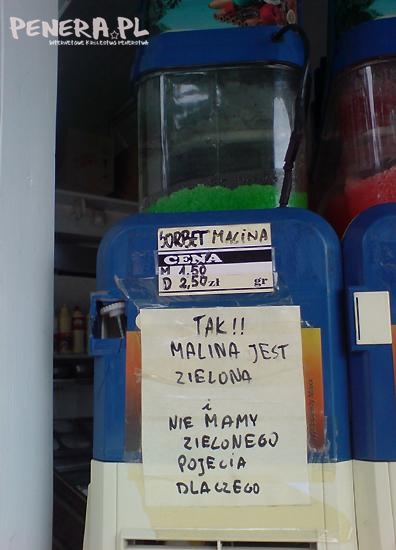 PENERA.PL
INTERNETOWE KRÓLESTWO PENERSTWA
SORBET MALINA
CENA
M 1.50
D 2,50 zł gr
TAK!!
MALINA JEST
ZIELONA
i
NIE MAMY
ZIELONEGO
POJĘCIA
DLACZEGO